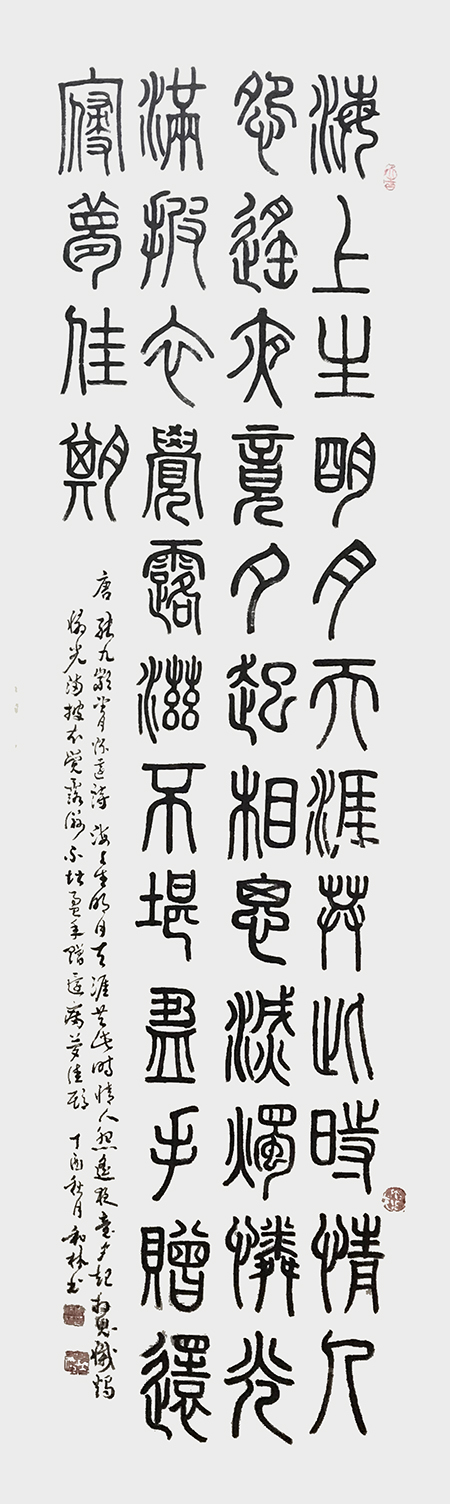 海上生明月天涯共此時情人
怨遙夜竟夕起相思滅燭憐光
滿披衣覺露滋不堪盈手贈還
寢夢佳期
唐張九齡望月懷遠詩海上生明月天涯共此時情人怨遙夜竟夕起相思滅燭
憐光滿披衣覺露滋不堪盈手贈還寢夢佳期丁酉秋月和林書